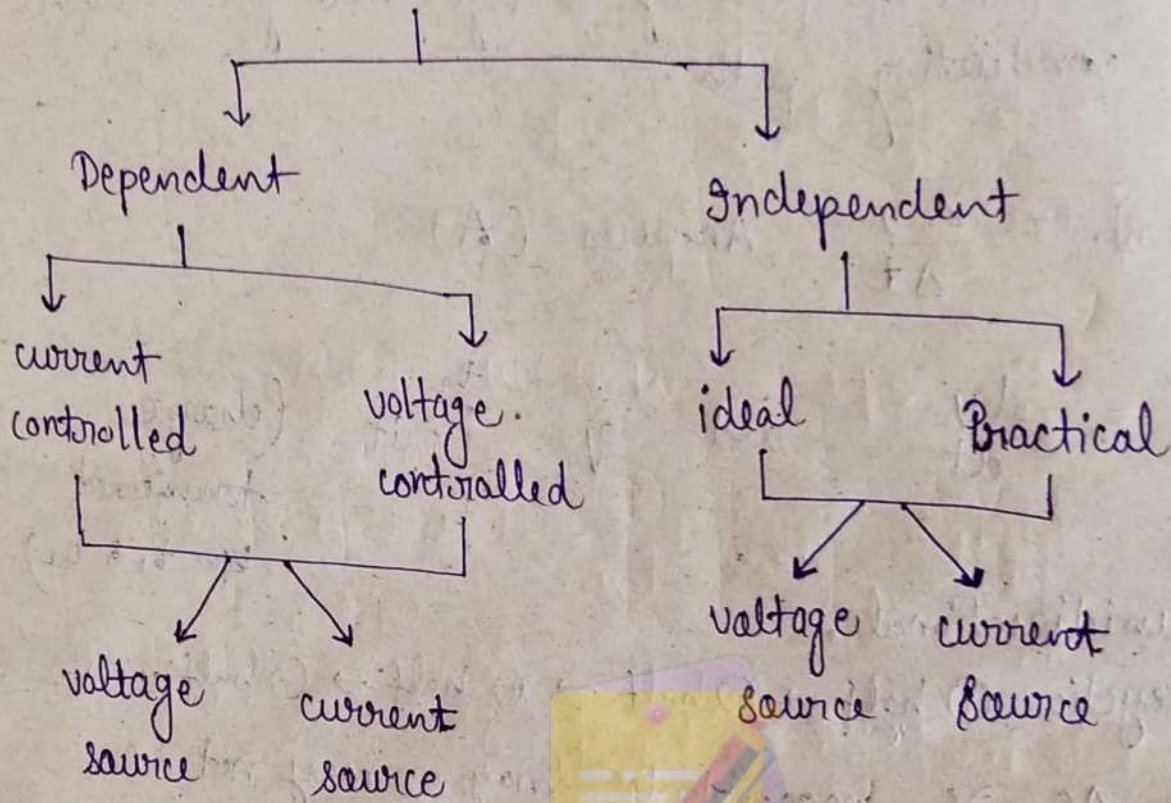 Dependent
Independent
current
controlled
voltage.
controlled
ideal
Practical
voltage
source
current
source
voltage
source
current
source